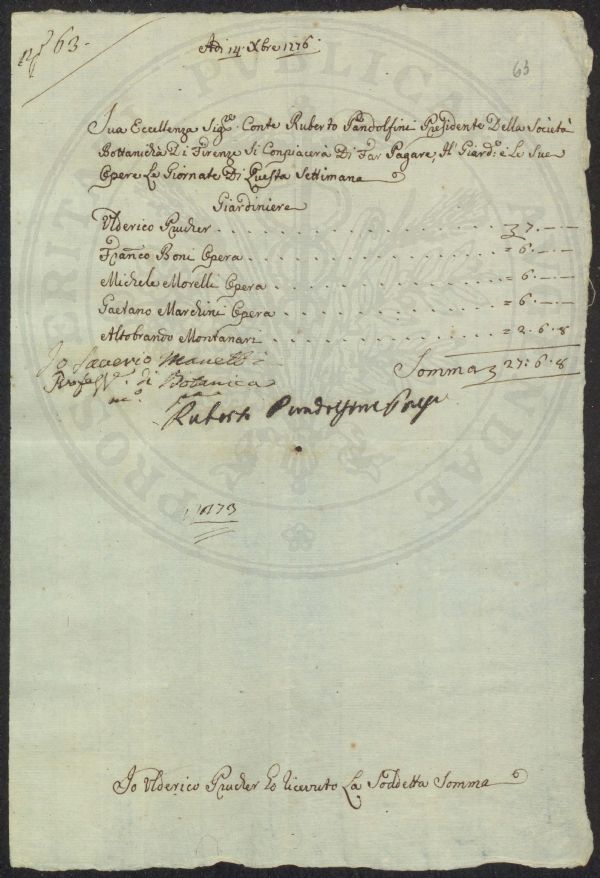 N.º 63.
Adi 14. Xbre 1776.
63
Sua Eccellenza Sig.re Conte Ruberto Pandolfini Presidente Della Società
Bottanicha Di Firenze Si Conpiacerà Di Far Pagare, Al Giard.e e Le Sue
Opere La Giornate Di Questa Settimana
Giardiniere
Ulderico Prucher . . . . . . . . . . 7. — —
Fran.co Boni Opera . . . . . . . . . = 6. — —
Michele Morelli Opera . . . . . . . . = 6. — —
Gaetano Marchini Opera . . . . . . . = 6. — —
Altobrando Montanari . . . . . . . . = 2. 6. 8
Somma 27. 6. 8
Io Saverio Manetti
Profess.re di Botanica
m.o
Ruberto Pandolfini
173
Io Ulderico Prucher ho ricevuto La Soddetta Somma
PROSPERITATI PUBLICAE AUGENDAE